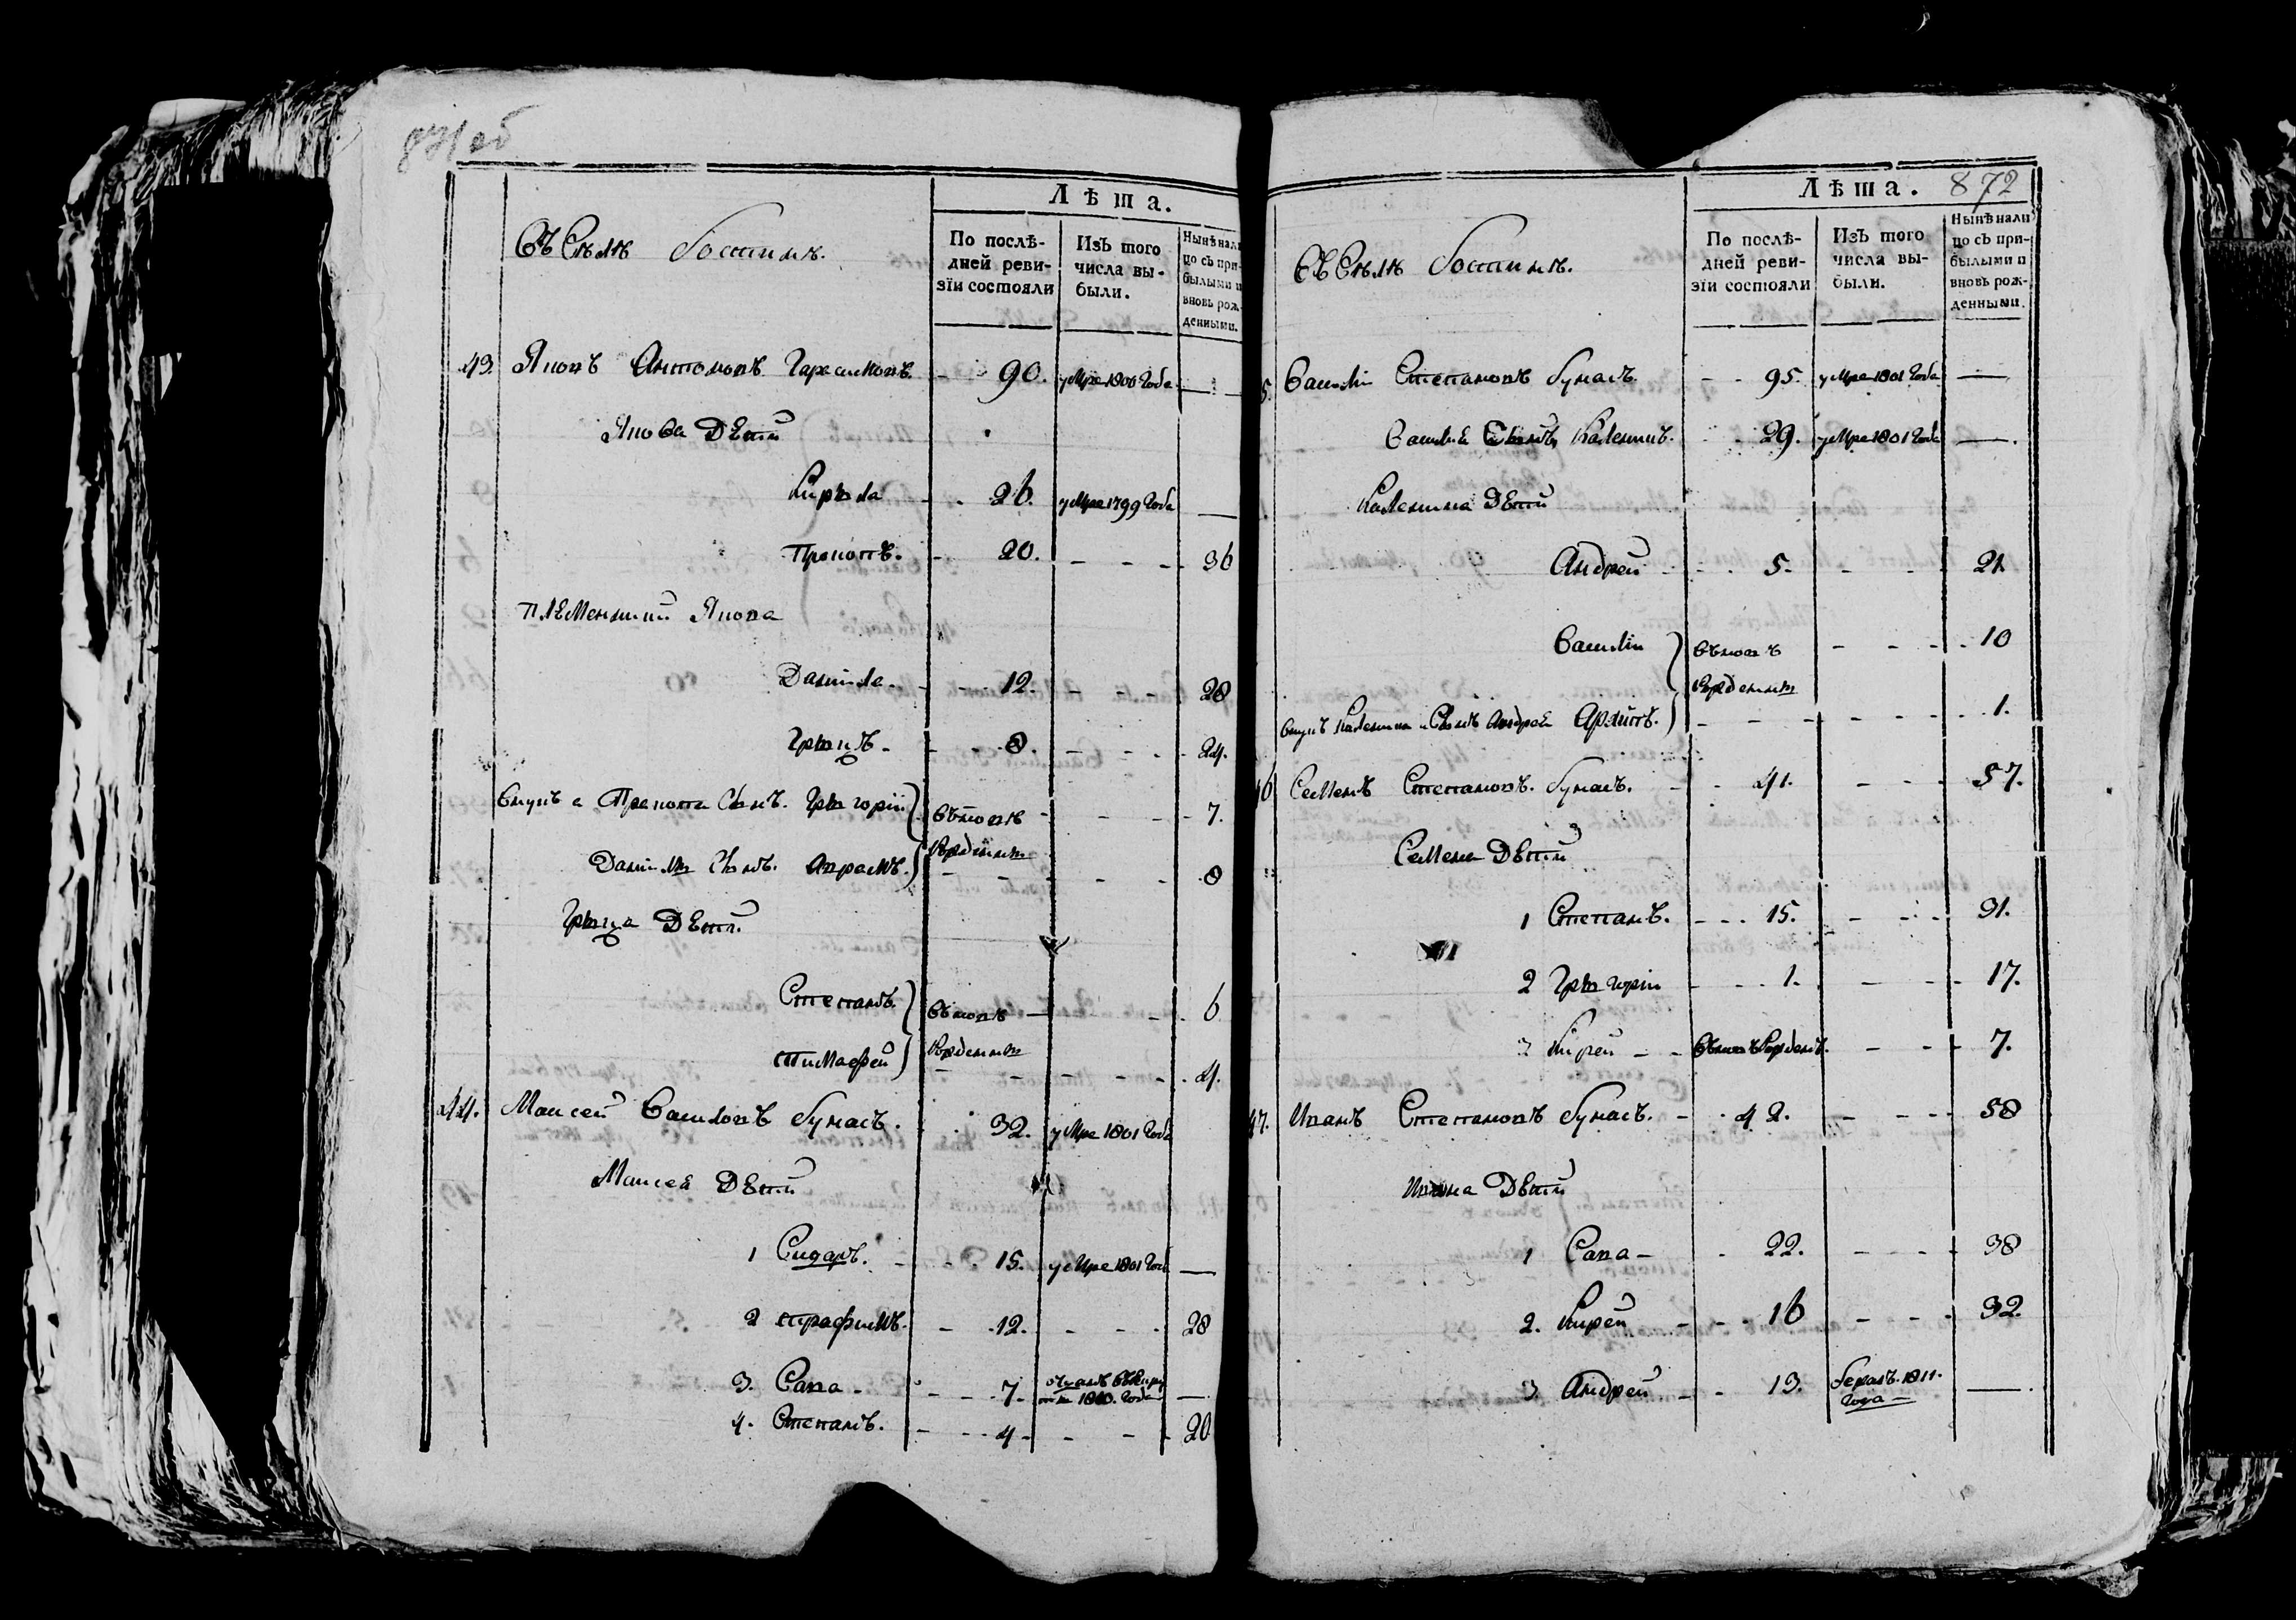 871 об
Лѣта.
Въ Селѣ Гостимѣ.
По послѣ-
дней реви-
зіи состояли
Изъ того
числа вы-
были.
Нынѣ нали
цо съ при-
былыми и
вновь рож-
денными.
43. Яковъ Антоновъ Гарасимовъ. 90. умре 1800 Года —
Якова Дети
Кирила 26. умре 1799 Года —
Прокопъ. 20. - - - 36
племенники Якова
Данила. 12. - - - 28
Грыцъ. 8. - - - 24.
Внукъ а Прокопа Сынъ. Грыгорій вьновѣ - - - 7.
Данилы Сынъ. Авраамъ. Рождены - - - 8
Грыца Дети.
Степанъ вьновѣ - - 6
Тимафей Рождены - - - 4.
44. Маисей Васильовъ Бунасъ. 32. умре 1801 Года
Маисея Дети
1 Сидаръ. 15. умре 1801 Года —
2 Трафимъ. 12. - - - 28
3. Сава - 7. 1810. Года —
4. Степанъ. 4 - - - 20
Лѣта. 872
Въ Селѣ Гостимѣ.
По послѣ-
дней реви-
зіи состояли
Изъ того
числа вы-
были.
Нынѣ нали
цо съ при-
былыми и
вновь рож-
денными.
5. Василій Степановъ Бунасъ. 95. умре 1801 Года —
Василия Сынъ Каленникъ. 29. умре 1801 Года —
Каленика Дети
Андрей 5. - - 21
Василій вьновѣ - - - 10
Рождены
внукъ Каленика Сынъ Андрея Архипъ. - - - 1.
46 Семенъ Степановъ. Бунасъ. 41. - - 57.
Семена Дѣти
1 Степанъ. 15. - - - 31.
2 Грыгорій 1. - - 17.
3 Кирей - вьновѣ Рожденъ. - - 7.
47. Иванъ Степановъ Бунасъ. 42. - - - 58
Ивана Дѣти
1 Сава - 22. - - - 38
2. Кирей 16 - - - 32.
3. Андрей - 13. бежалъ. 1811.
Года — —